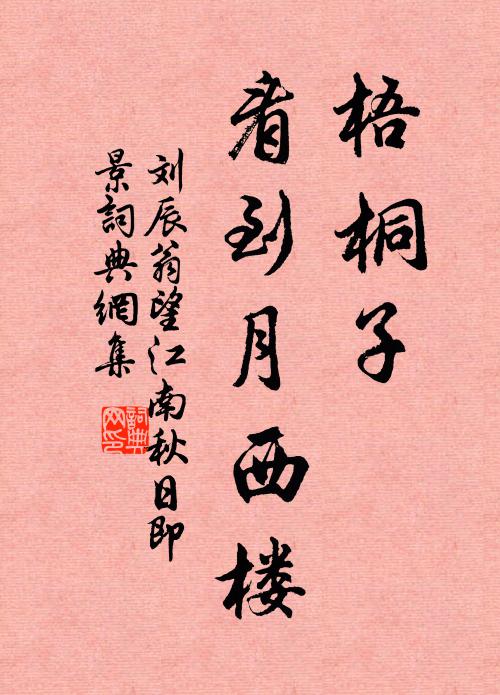 梧桐子
看到月西楼
刘辰翁望江南秋日即
景詞典網集
詞典
网印